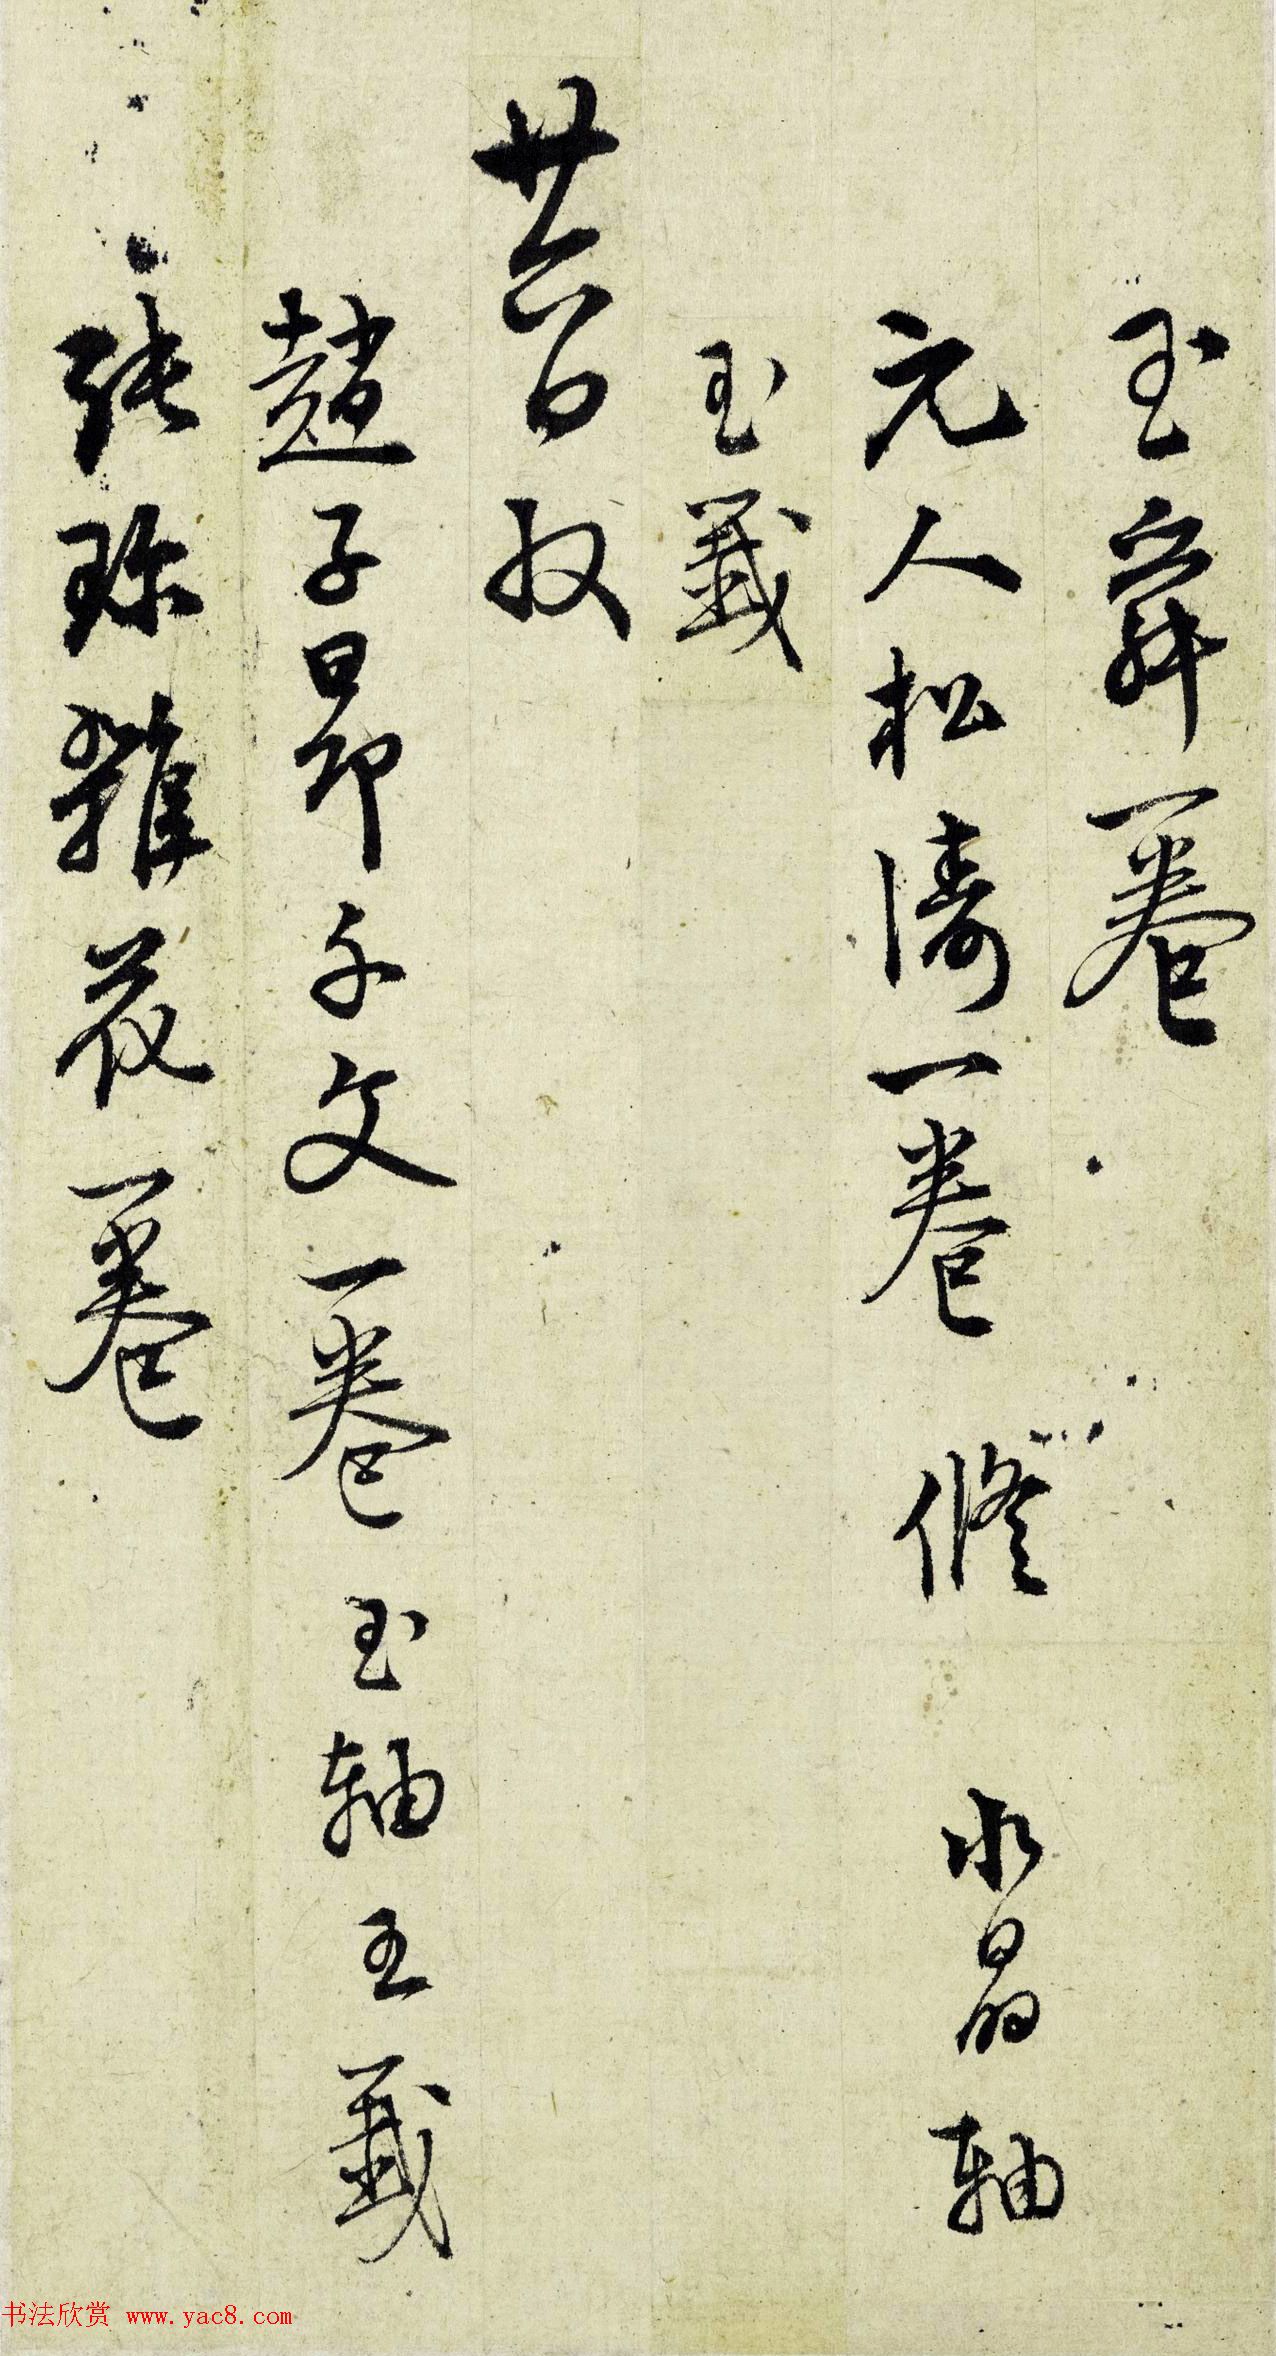 玉舜一卷
元人松濤一卷 修 水晶軸
玉籤
廿六日收
趙子昂千文一卷 玉軸玉籤
張珎雜花一卷
书法欣赏 www.yac8.com